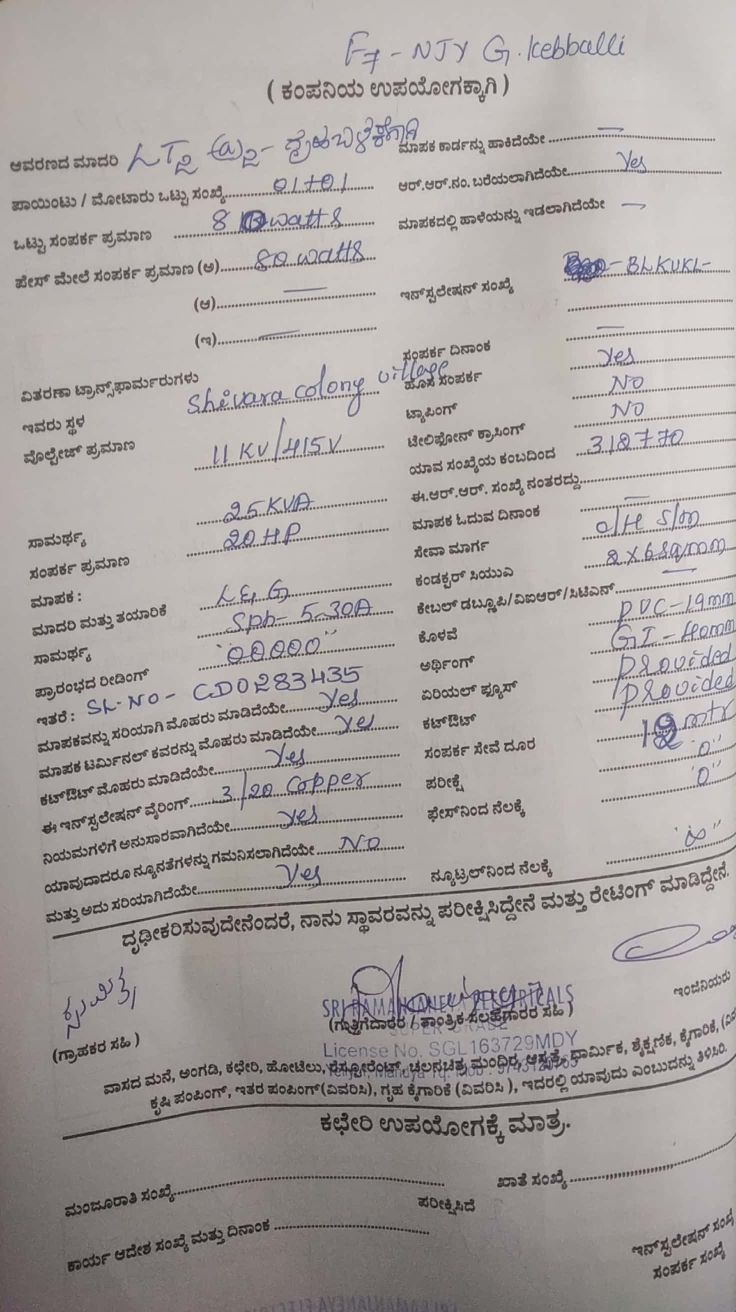 F7 - NJY G. Kebballi
( ಕಂಪನಿಯ ಉಪಯೋಗಕ್ಕಾಗಿ )
ಆವರಣದ ಮಾದರಿ
ಮಾಪಕ ಕಾರ್ಡನ್ನು ಹಾಕಿದೆಯೇ —
ಪಾಯಿಂಟು / ಮೋಟಾರು ಒಟ್ಟು ಸಂಖ್ಯೆ 01+01
ಆರ್.ಆರ್.ನಂ. ಬರೆಯಲಾಗಿದೆಯೇ Yes
ಒಟ್ಟು ಸಂಪರ್ಕ ಪ್ರಮಾಣ 80 watts
ಮಾಪಕದಲ್ಲಿ ಹಾಳೆಯನ್ನು ಇಡಲಾಗಿದೆಯೇ —
ಫೇಸ್ ಮೇಲೆ ಸಂಪರ್ಕ ಪ್ರಮಾಣ (ಅ) 80 watts
(ಆ) —
ಇನ್‌ಸ್ಟಲೇಷನ್ ಸಂಖ್ಯೆ BLKUKL-
(ಇ) —
ಸಂಪರ್ಕ ದಿನಾಂಕ —
ವಿತರಣಾ ಟ್ರಾನ್ಸ್‌ಫಾರ್ಮರುಗಳು
ಹೊಸ ಸಂಪರ್ಕ Yes
ಇವರು ಸ್ಥಳ Shivara colony village
ಟ್ಯಾಪಿಂಗ್ NO
ವೋಲ್ಟೇಜ್ ಪ್ರಮಾಣ 11 KV/415V
ಟೇಲಿಫೋನ್ ಕ್ರಾಸಿಂಗ್ NO
ಯಾವ ಸಂಖ್ಯೆಯ ಕಂಬದಿಂದ 318770
ಈ.ಆರ್.ಆರ್. ಸಂಖ್ಯೆ ನಂತರದ್ದು
ಸಾಮರ್ಥ್ಯ 25 KVA
ಮಾಪಕ ಓದುವ ದಿನಾಂಕ —
ಸಂಪರ್ಕ ಪ್ರಮಾಣ 20 HP
ಸೇವಾ ಮಾರ್ಗ O/H S/m
ಮಾಪಕ :
ಕಂಡಕ್ಟರ್ ಸಿಯುವಿ 2X6 sqmm
ಮಾದರಿ ಮತ್ತು ತಯಾರಿಕೆ L&G
ಕೇಬಲ್ ಡಬ್ಲೂಪಿ/ವಿಐಆರ್/ಸಿಟಿಎಸ್ —
ಸಾಮರ್ಥ್ಯ Sph- 5-30A
ಕೊಳವೆ PVC-19mm
ಪ್ರಾರಂಭದ ರೀಡಿಂಗ್ "00000"
ಅರ್ಥಿಂಗ್ GI-40mm
ಇತರೆ : SL.NO- CD0283435
ಏರಿಯಲ್ ಫ್ಯೂಸ್ Provided
ಮಾಪಕವನ್ನು ಸರಿಯಾಗಿ ಮೊಹರು ಮಾಡಿದೆಯೇ Yes
ಕಟ್‌ಔಟ್ Provided
ಮಾಪಕ ಟರ್ಮಿನಲ್ ಕವರನ್ನು ಮೊಹರು ಮಾಡಿದೆಯೇ Yes
ಸಂಪರ್ಕ ಸೇವೆ ದೂರ 12 mtr
ಕಟ್‌ಔಟ್ ಮೊಹರು ಮಾಡಿದೆಯೇ Yes
ಪರೀಕ್ಷೆ "0"
ಈ ಇನ್‌ಸ್ಟಲೇಷನ್ ವೈರಿಂಗ್ 3/20 Copper
ಫೇಸ್‌ನಿಂದ ನೆಲಕ್ಕೆ "0"
ನಿಯಮಗಳಿಗೆ ಅನುಸಾರವಾಗಿದೆಯೇ Yes
ಯಾವುದಾದರೂ ನ್ಯೂನತೆಗಳನ್ನು ಗಮನಿಸಲಾಗಿದೆಯೇ NO
ಮತ್ತು ಅದು ಸರಿಯಾಗಿದೆಯೇ Yes
ನ್ಯೂಟ್ರಲ್‌ನಿಂದ ನೆಲಕ್ಕೆ "∞"
ದೃಢೀಕರಿಸುವುದೇನೆಂದರೆ, ನಾನು ಸ್ಥಾವರವನ್ನು ಪರೀಕ್ಷಿಸಿದ್ದೇನೆ ಮತ್ತು ರೇಟಿಂಗ್ ಮಾಡಿದ್ದೇನೆ.
SRI RAMANJANEYA ELECTRICALS
(ಗ್ರಾಹಕರ ಸಹಿ )
(ಗುತ್ತಿಗೆದಾರರ / ತಾಂತ್ರಿಕ ಸಲಹೆಗಾರರ ಸಹಿ )
ಇಂಜಿನಿಯರು
License No. SGL163729MDY
ವಾಸದ ಮನೆ, ಅಂಗಡಿ, ಕಛೇರಿ, ಹೋಟೆಲು, ರೆಸ್ಟೋರೆಂಟ್, ಚಲನಚಿತ್ರ ಮಂದಿರ, ಆಸ್ಪತ್ರೆ, ಧಾರ್ಮಿಕ, ಶೈಕ್ಷಣಿಕ, ಕೈಗಾರಿಕೆ,
ಕೃಷಿ ಪಂಪಿಂಗ್, ಇತರ ಪಂಪಿಂಗ್(ವಿವರಿಸಿ), ಗೃಹ ಕೈಗಾರಿಕೆ (ವಿವರಿಸಿ ), ಇದರಲ್ಲಿ ಯಾವುದು ಎಂಬುದನ್ನು ತಿಳಿಸಿರಿ.
ಕಛೇರಿ ಉಪಯೋಗಕ್ಕೆ ಮಾತ್ರ.
ಮಂಜೂರಾತಿ ಸಂಖ್ಯೆ
ಖಾತೆ ಸಂಖ್ಯೆ
ಪರೀಕ್ಷಿಸಿದೆ
ಕಾರ್ಯ ಆದೇಶ ಸಂಖ್ಯೆ ಮತ್ತು ದಿನಾಂಕ
ಇನ್‌ಸ್ಟಲೇಷನ್
ಸಂಪರ್ಕ ಸಂಖ್ಯೆ